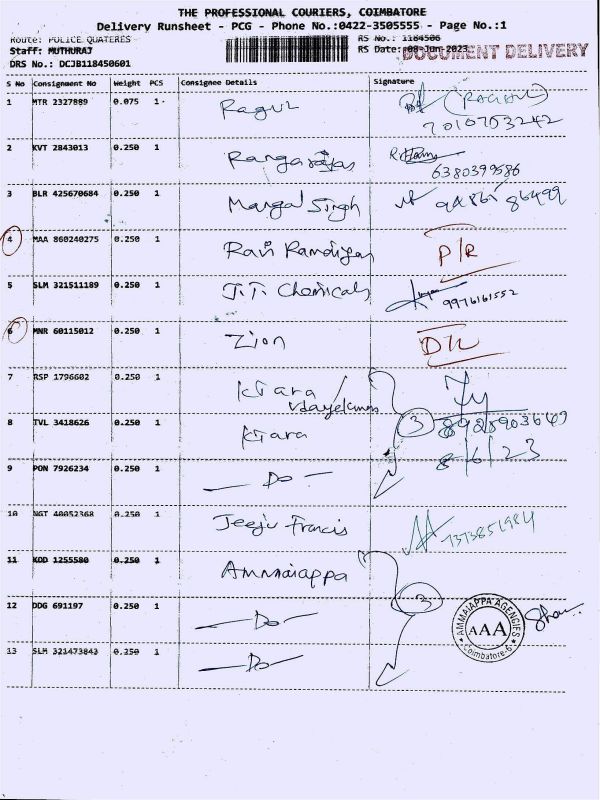 THE PROFESSIONAL COURIERS, COIMBATORE
Delivery Runsheet - PCG - Phone No.:0422-3505555 - Page No.:1
Route: POLICE QUATERES RS No.: 1184506
Staff: MUTHURAJ RS Date: 08-Jun-2023 DOCUMENT DELIVERY
DRS No.: DCJB118450601
S No Consignment No Weight PCS Consignee Details Signature
1 MTR 2327889 0.075 1 Ragul (RAGHUL)
7010753242
2 KVT 2843013 0.250 1 Rangarajan
6380399586
3 BLR 425670684 0.250 1 Mangal Singh 86499
4 MAA 860240275 0.250 1 Ravi Pandiyan P/R
5 SLM 321511189 0.250 1 J.T. Chemicals 9976161552
6 MNR 60115012 0.250 1 Zion D/L
7 RSP 1796602 0.250 1 Kiara /
Udayakumar
8 TVL 3418626 0.250 1 Kiara 3 8925903649
8/6/23
9 PON 7926234 0.250 1 — Do —
10 NGT 40052368 0.250 1 Jeeju Francis 7373851984
11 KOD 1255580 0.250 1 Ammaiappa
12 DDG 691197 0.250 1 — Do — 3 AMMAIAPPA AGENCIES
AAA
Coimbatore-6
13 SLM 321473843 0.250 1 — Do —